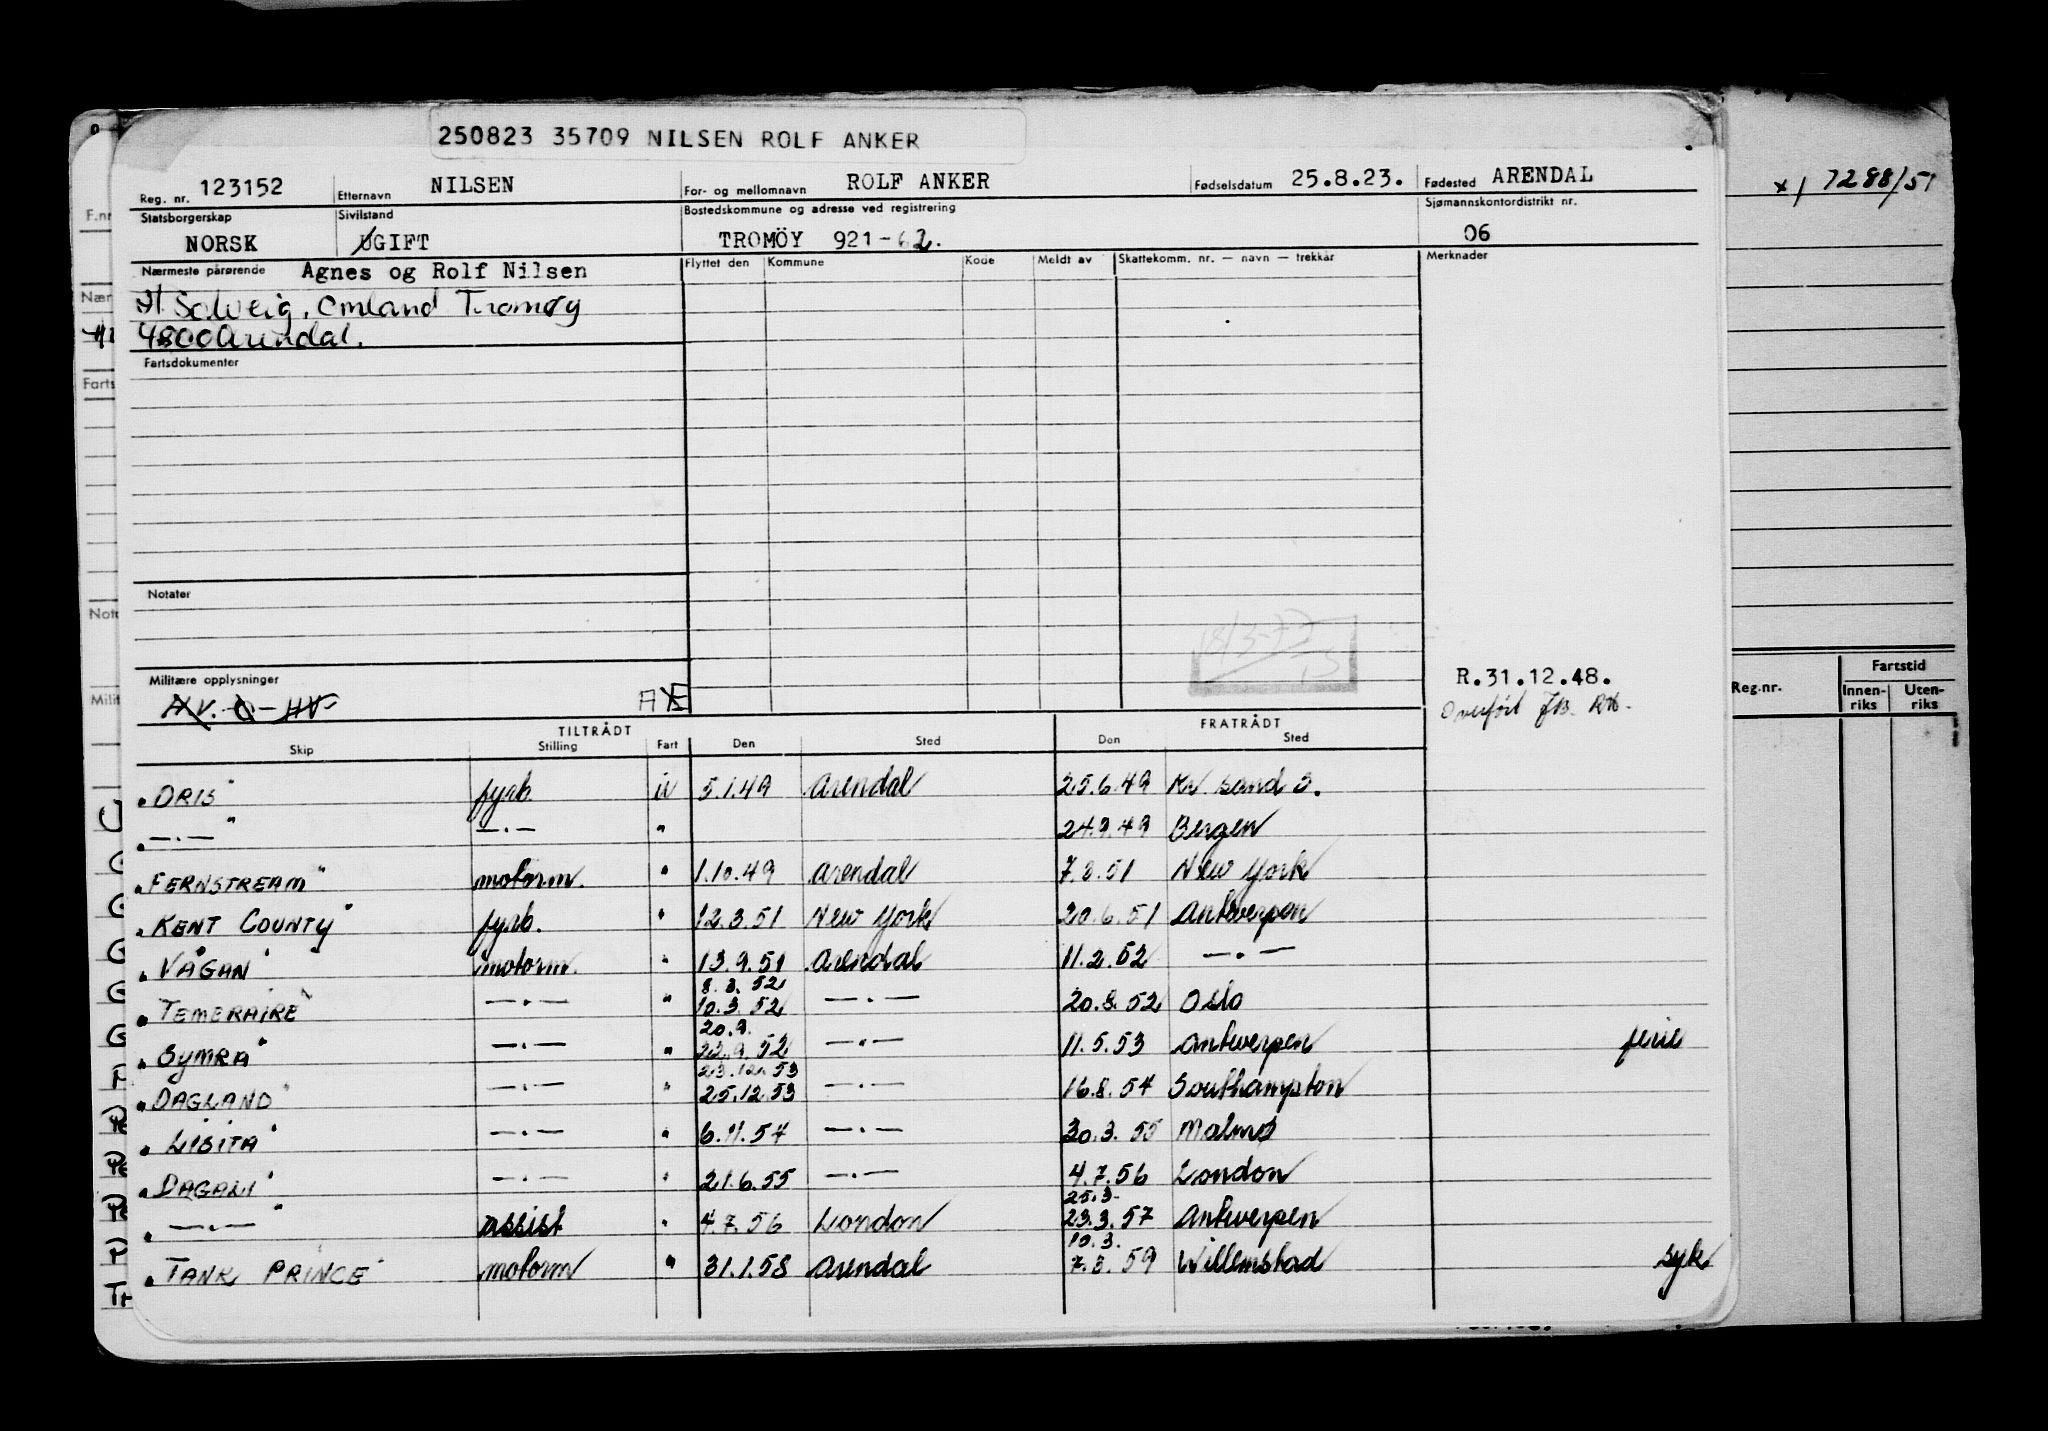 250823 35709 NILSEN ROLF ANKER
Reg. nr. 123152 Etternavn NILSEN For- og mellomnavn ROLF ANKER Fødselsdatum 25.8.23. Fødested ARENDAL
x) 7288/51
F.nr
Statsborgerskap Sivilstand Bostedskommune og adresse ved registrering Sjømannskontordistrikt nr.
NORSK UGIFT TROMÖY 921-62. 06
Nærmeste pårørende Agnes og Rolf Nilsen Flyttet den Kommune Kode Meldt av Skattekomm. nr. — navn — trekkår Merknader
Nær
Solveig, Omland Tromøy
4800 Arendal.
Fartsdokumenter
Farts
Notater
Note
Militære opplysninger R.31.12.48.
Milit
Av. Ö-HV
Overført
Reg.nr. Fartstid
Innen-riks Uten-riks
TILTRÅDT FRATRÅDT
Skip Stilling Fart Den Sted Den Sted
"ORIS" fyrb. u 5.1.49 Arendal 25.6.49 Kr. sand S.
" —.— " —.— " 24.9.49 Bergen
"FERNSTREAM" motorm. " 1.10.49 Arendal 7.3.51 New York
"KENT COUNTY" fyrb. " 12.3.51 New York 20.6.51 Antwerpen
"VÅGAN" motorm. " 13.9.51 Arendal 11.2.52 —.—
8.3.52
"TEMERAIRE" —.— " 10.3.52 —.— 20.8.52 Oslo
20.9.
"SYMRA" —.— " 22.9.52 —.— 11.5.53 Antwerpen ferie
23.12.53
"DAGLAND" —.— " 25.12.53 —.— 16.8.54 Southampton
"LISITA" —.— " 6.11.54 —.— 30.3.55 Malmø
"DAGALI" —.— " 21.6.55 —.— 4.7.56 London
25.3.
" —.— " assist " 4.7.56 London 23.3.57 Antwerpen
10.3.
"TANK PRINCE" motorm " 31.1.58 Arendal 7.3.59 Willemstad syk